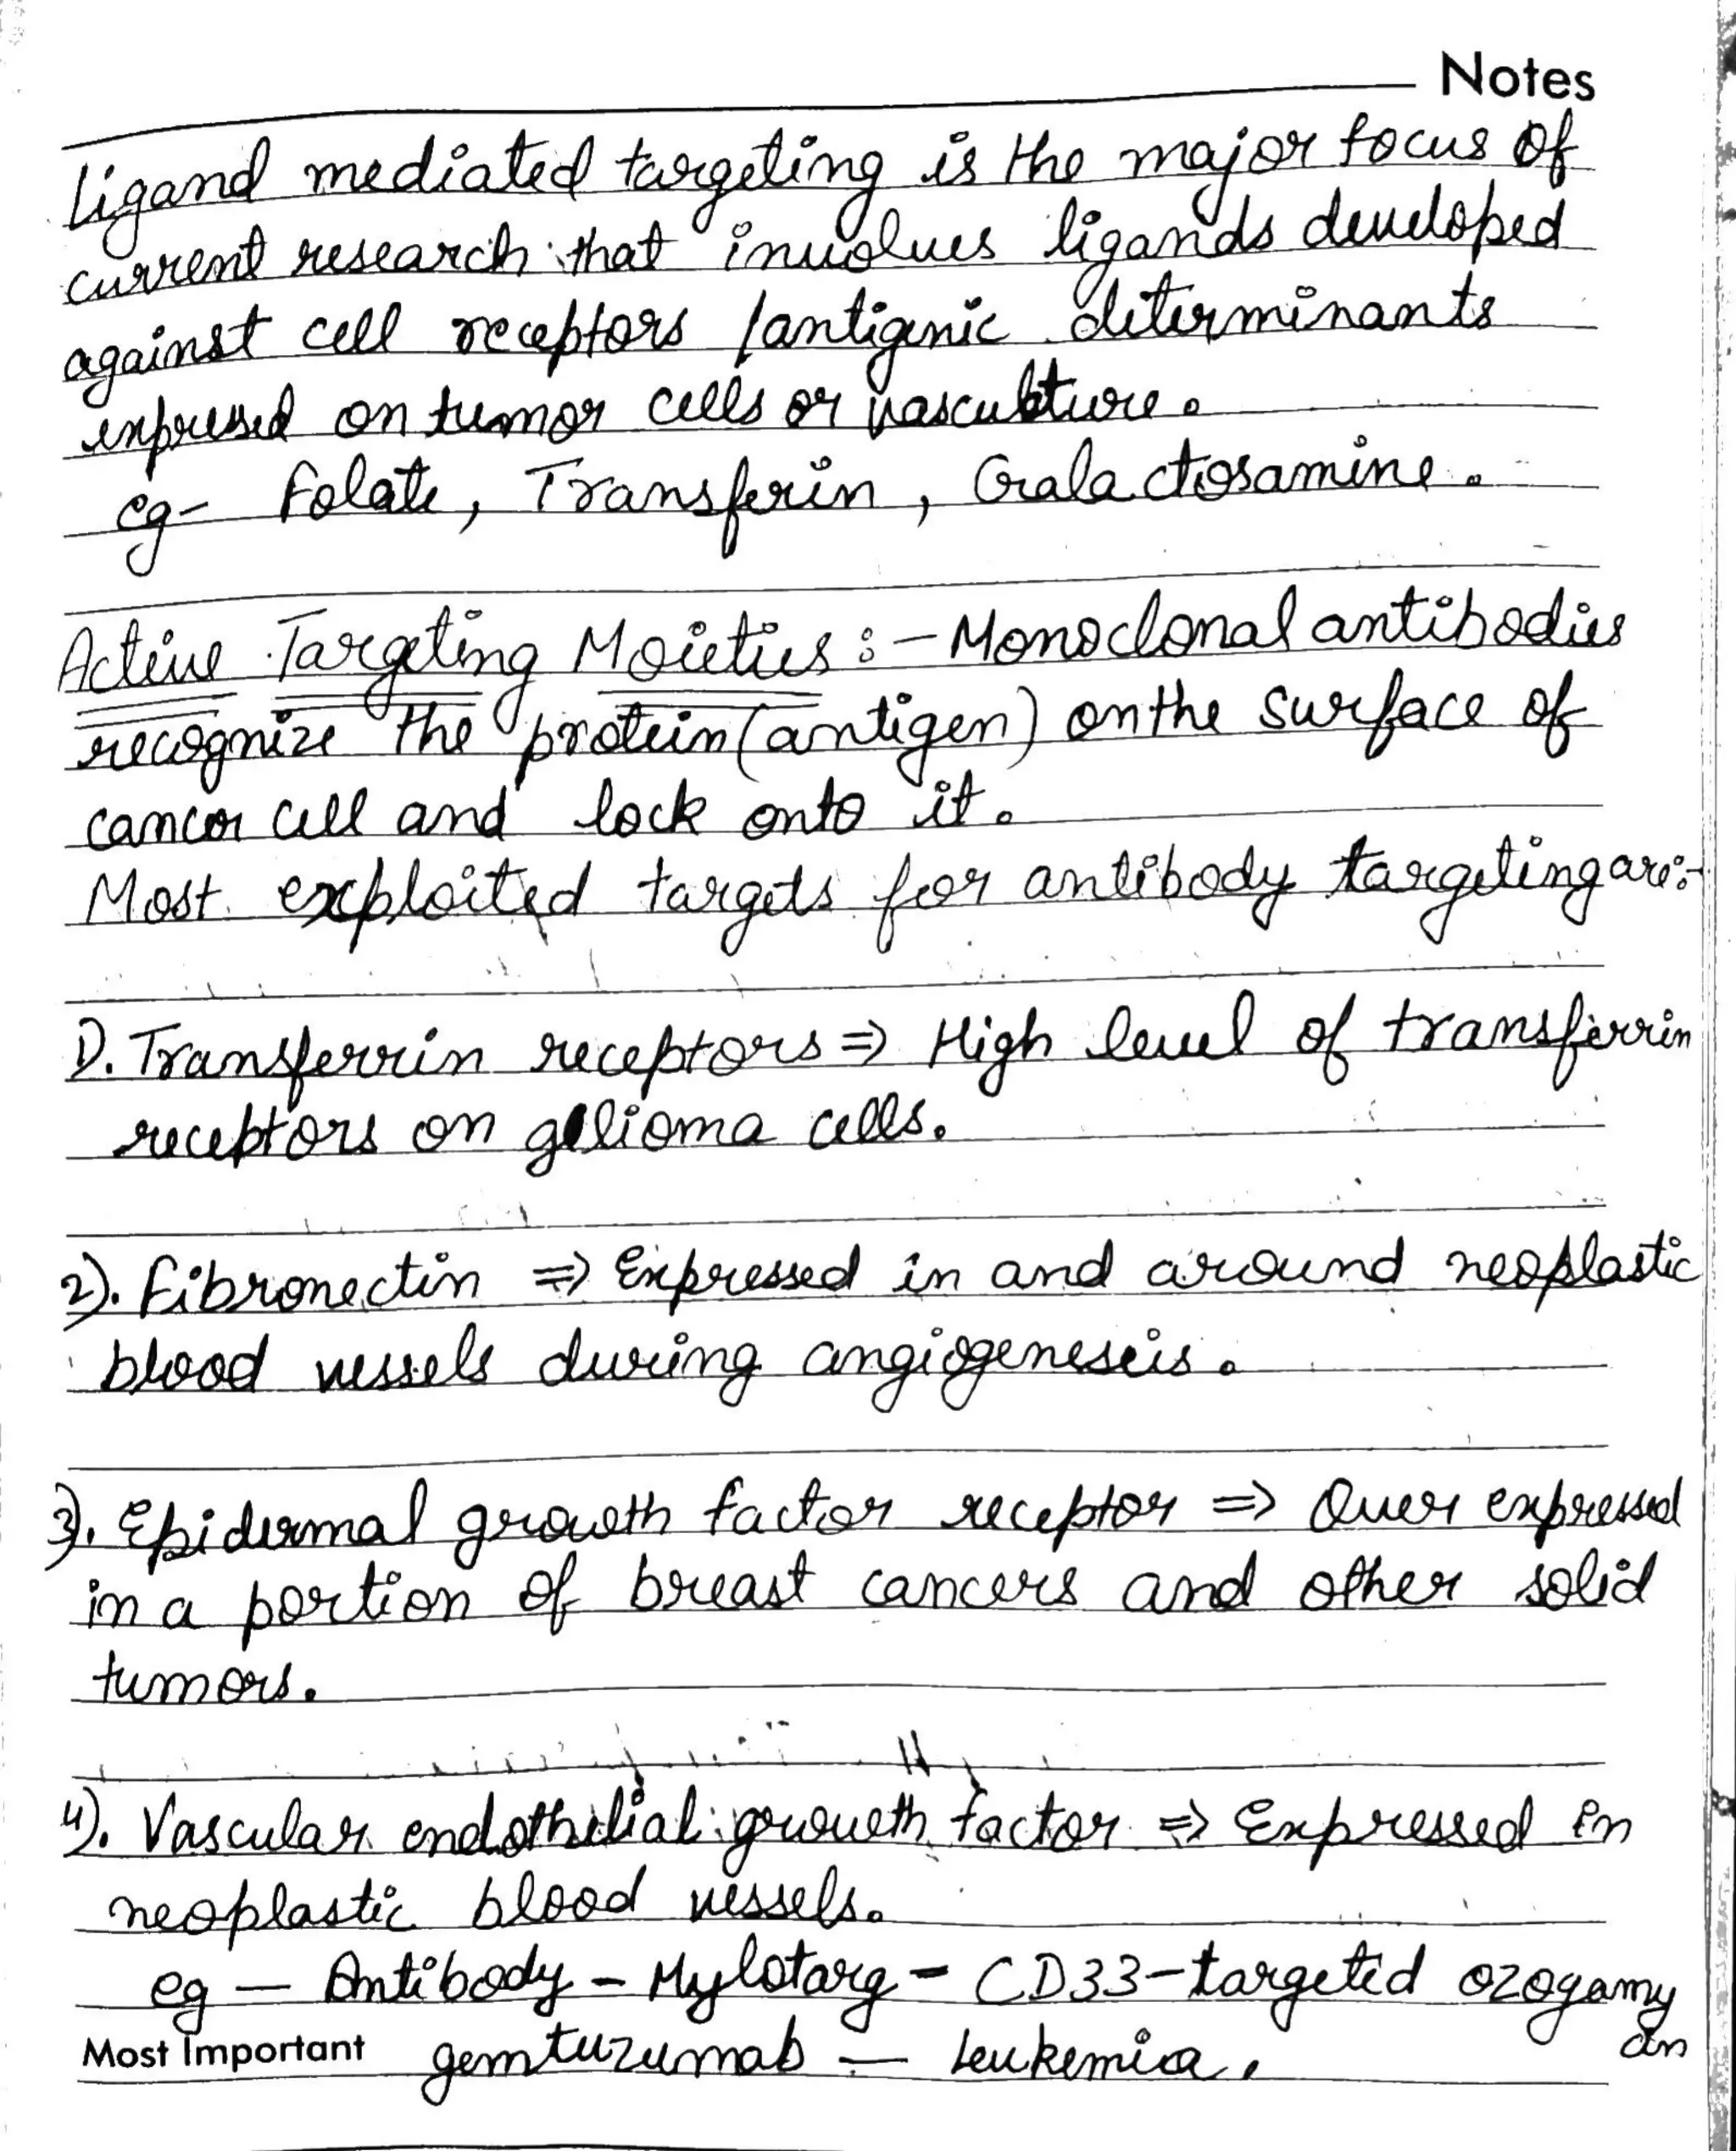 Notes
Ligand mediated targeting is the major focus of
current research that involves ligands developed
against cell receptors /antigenic determinants
expressed on tumor cells or vasculture.
eg- Folate, Transferin, Galactosamine.
Active Targeting Moieties :- Monoclonal antibodies
recognize the protein (antigen) on the surface of
cancer cell and lock onto it.
Most exploited targets for antibody targeting are:-
1). Transferrin receptors => High level of transferrin
receptors on glioma cells.
2). Fibronectin => Expressed in and around neoplastic
blood vessels during angiogenesis.
3). Epidermal growth factor receptor => Over expressed
in a portion of breast cancers and other solid
tumors.
4). Vascular endothelial growth factor => Expressed in
neoplastic blood vessels.
eg - Antibody - Mylotarg - CD33-targeted ozogamy
cin
Most Important gemtuzumab - Leukemia.